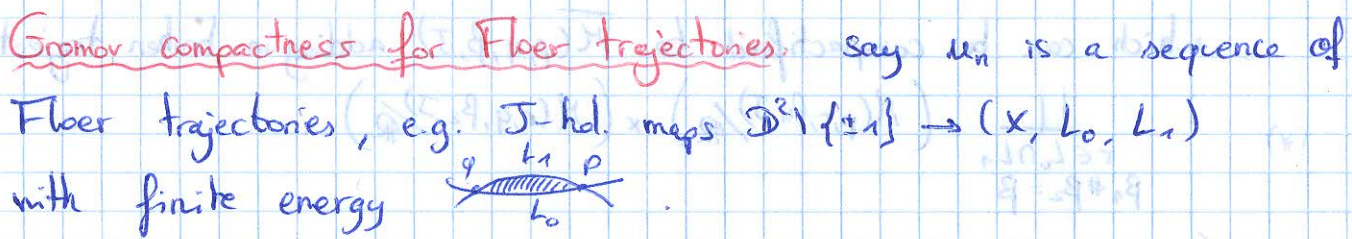 Gromov compactness for Floer trajectories. say uₙ is a sequence of
Floer trajectories, e.g. J-hol. maps D²\{±1} → (X, L₀, L₁)
q L₁ p
with finite energy L₀ .